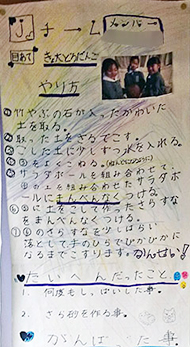 チーム
メンバー
目あて
きょ大どろだんご
やり方
① 竹やぶの石が入ったかわいた
土を取る。
② 取った土をざるでこす。
③ こした土に少しずつ水を入れる。
④ ③をよくこねる。
⑤ サラダボールを組み合わせて、
④の土を組み合わせたサラダボ
ールにまんべんなくつける。
⑥ ⑤に土をこして作ったさらすな
をまんべんなくつける。
⑦ ⑥のさらすなを少しはらい
落として手のひらでぴかぴかに
なるまでこすります。かんせい!
たいへんだったこと
1. 何度もしっぱいした事。
2. さらすなを作る事。
がんばった事